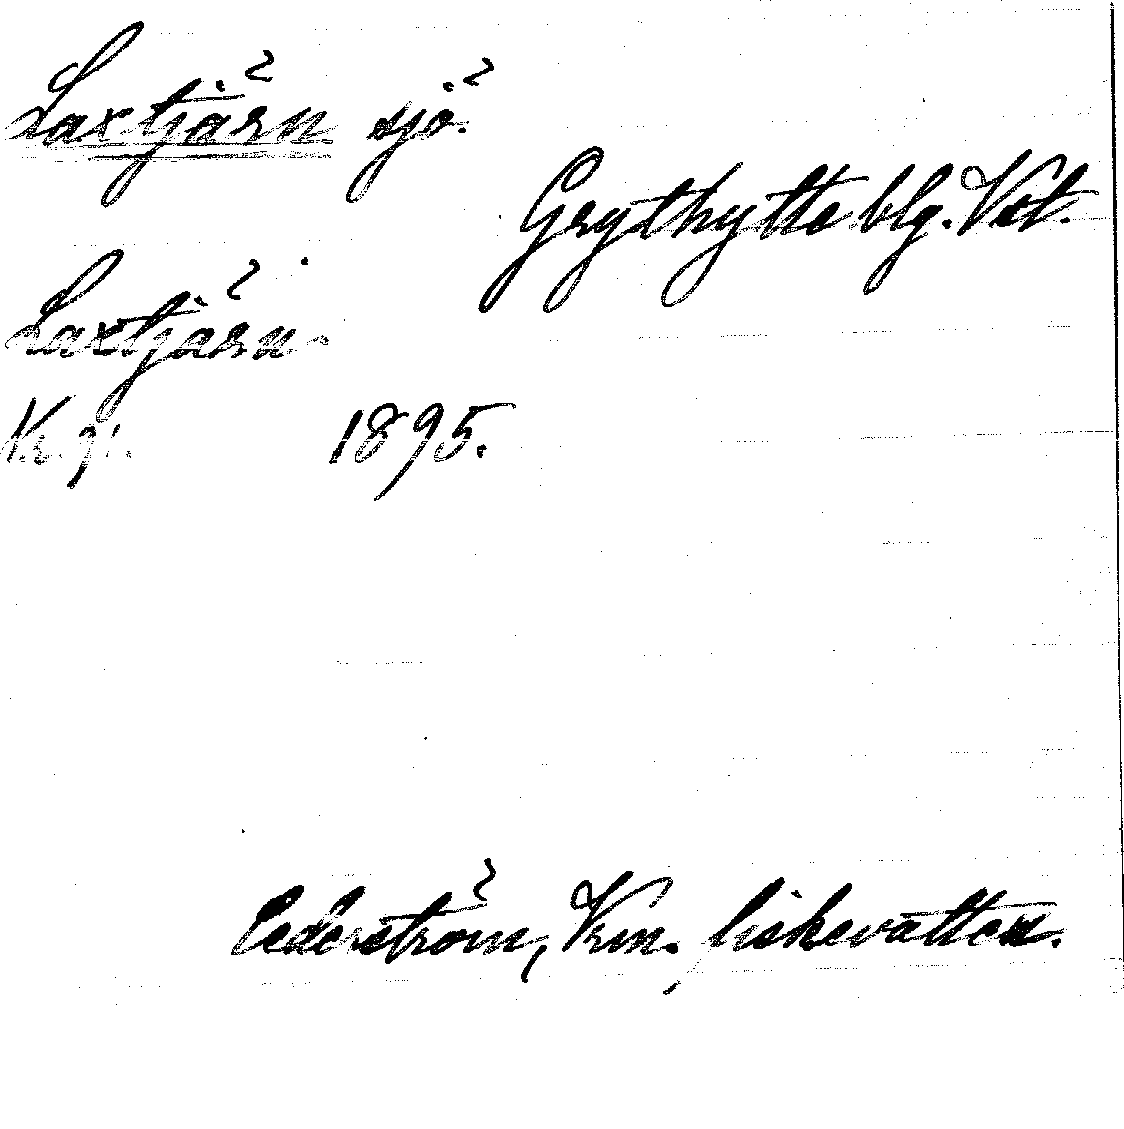 Laxtjärn sjö.
Grythytte blg. Vstm.
Laxtjärn
1895.
Cederström, Vrm. fiskevatten.